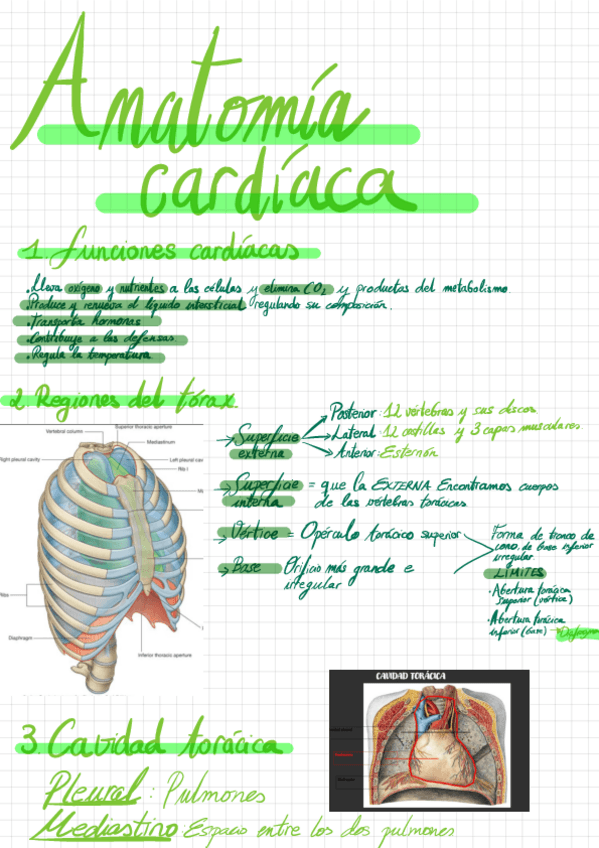 Anatomía
cardíaca
1. funciones cardíacas
• Lleva oxígeno y nutrientes a las células y elimina CO2 y productos del metabolismo.
• Produce y renueva el líquido intersticial regulando su composición.
• Transporta hormonas
• Contribuye a las defensas.
• Regula la temperatura
2. Regiones del tórax.
Superior thoracic aperture
Vertebral column
Mediastinum
Right pleural cavity
Left pleural cav
Rib I
Ribs
Diaphragm
Inferior thoracic aperture
→ Superficie externa
Posterior: 12 vértebras y sus discos
Lateral: 12 costillas y 3 capas musculares
Anterior: Esternón
→ Superficie interna = que la EXTERNA Encontramos cuerpos
de las vértebras torácicas
→ Vértice = Opérculo torácico superior
→ Base Orificio más grande e
irregular
Forma de tronco de
cono, de base inferior
irregular
LÍMITES
• Abertura torácica
superior (vértice)
• Abertura torácica
inferior (base) → Diafragma
CAVIDAD TORÁCICA
3. Cavidad torácica
Pleural: Pulmones
Mediastino: Espacio entre los dos pulmones